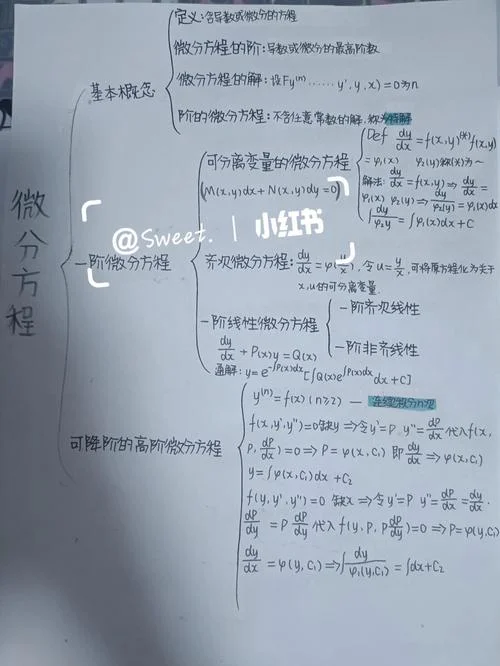 微分方程
基本概念
定义:含导数或微分的方程
微分方程的阶:导数或微分的最高阶数
微分方程的解:设Fy⁽ⁿ⁾……y′,y,x)=0为n
阶的微分方程:不含任意常数的解,称为特解
一阶微分方程
可分离变量的微分方程
(M(x,y)dx+N(x,y)dy=0)
Def dy/dx=f(x,y)⁽*⁾f(x,y)
=φ₁(x) φ₂(y)称(*)为~
解法:dy/dx=f(x,y)⇒dy/dx=
φ₁(x)φ₂(y)⇒dy/φ₂(y)=φ₁(x)dx
∫dy/φ₂y=∫φ₁(x)dx+C
@Sweet. | 小红书
齐次微分方程:dy/dx=φ(y/x),令u=y/x,可将原方程化为关于
x,u的可分离变量.
一阶线性微分方程
一阶齐次线性
一阶非齐线性
dy/dx+P(x)y=Q(x)
通解:y=e^-∫P(x)dx[∫Q(x)e^∫P(x)dx dx+C]
可降阶的高阶微分方程
y⁽ⁿ⁾=f(x)(n≥2) — 连续积分n次
f(x,y′,y″)=0缺y⇒令y′=P y″=dP/dx代入f(x,
P,dP/dx)=0⇒P=φ(x,C₁)即dy/dx⇒φ(x,C₁)
y=∫φ(x,C₁)dx+C₂
f(y,y′,y″)=0 缺x⇒令y′=P y″=dP/dx=dy/dx·
dP/dy=P dP/dy代入f(y,P,PdP/dy)=0⇒P=φ(y,C₁)
dy/dx=φ(y,C₁)⇒∫dy/φ₁(y,C₁)=∫dx+C₂